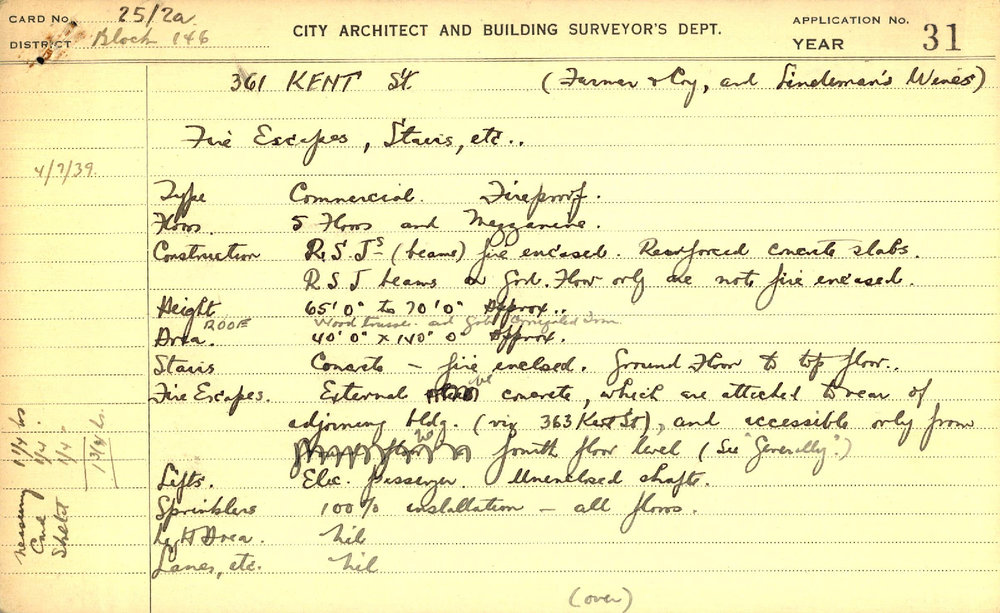 CARD No. 25/2a
DISTRICT Block 146
CITY ARCHITECT AND BUILDING SURVEYOR'S DEPT.
APPLICATION No.
YEAR 31
361 KENT St. (Farmer & Coy, and Lindeman's Wines)
Fire Escapes, Stairs, etc..
4/7/39.
Type Commercial. Fireproof.
Floors. 5 Floors and Mezzanine.
Construction R.S.Js (beams) fire encased. Reinforced concrete slabs.
R S J beams on Grd. Floor only are not fire encased.
Height 65' 0" to 70' 0" Approx..
ROOF Wood trusses and Galv Corrugated Iron
Area. 40' 0" x 140' 0" Approx.
Stairs Concrete – fire enclosed. Ground Floor to top floor..
Fire Escapes. External concrete, which are attached to rear of
adjoining bldg. (viz 363 Kent St), and accessible only from
fourth floor level (See "Generally".)
Lifts. Elec. passenger. Unenclosed shafts.
Sprinklers 100% installation – all floors.
Lt, H Area. Nil
Lanes, etc. Nil
(over)
Measuring 1 1/4 hrs
Card 1/4 "
Sketch 1/4 "
1 3/4 hrs.